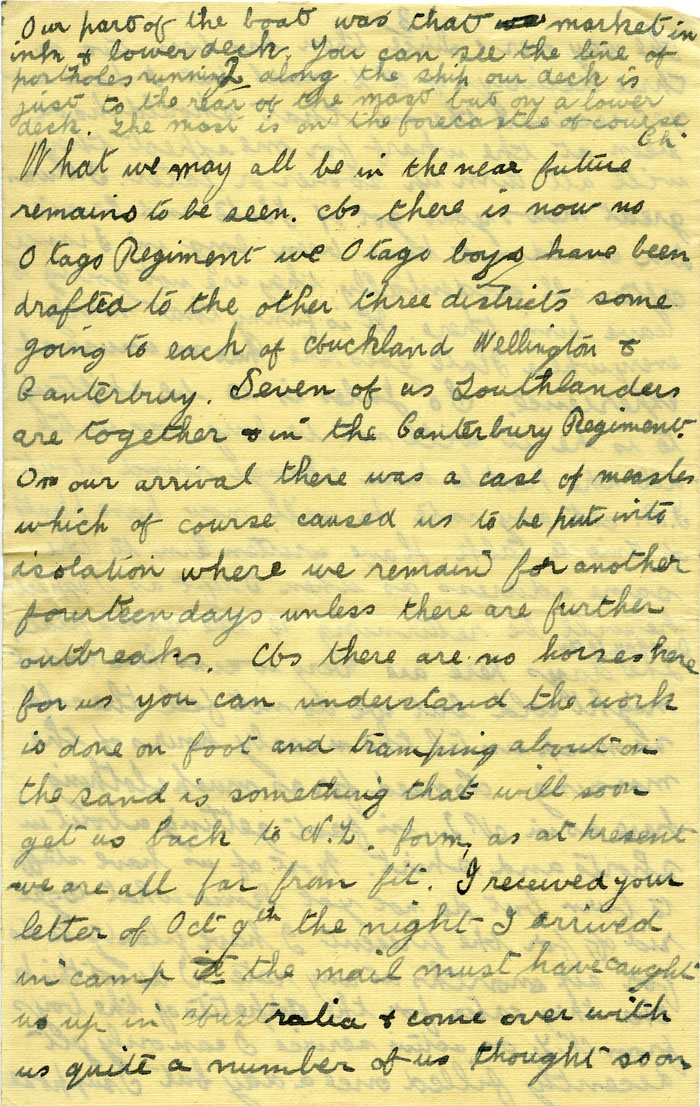 Our part of the boat was that market in
ink & lower deck. You can see the line of
portholes running along the ship our deck is
just to the rear of the mast but on a lower
deck. The mast is on the forecastle of course
Ch'
What we may all be in the near future
remains to be seen. As there is now no
Otago Regiment we Otago boys have been
drafted to the other three districts some
going to each of Auckland Wellington &
Canterbury. Seven of us Southlanders
are together & in the Canterbury Regiment.
On our arrival there was a case of measles
which of course caused us to be put into
isolation where we remain for another
fourteen days unless there are further
outbreaks. As there are no horses here
for us you can understand the work
is done on foot and tramping about on
the sand is something that will soon
get us back to N.Z. form, as at present
we are all far from fit. I received your
letter of Oct 9th the night I arrived
in camp the mail must have caught
us up in Australia & come over with
us quite a number of us thought soon